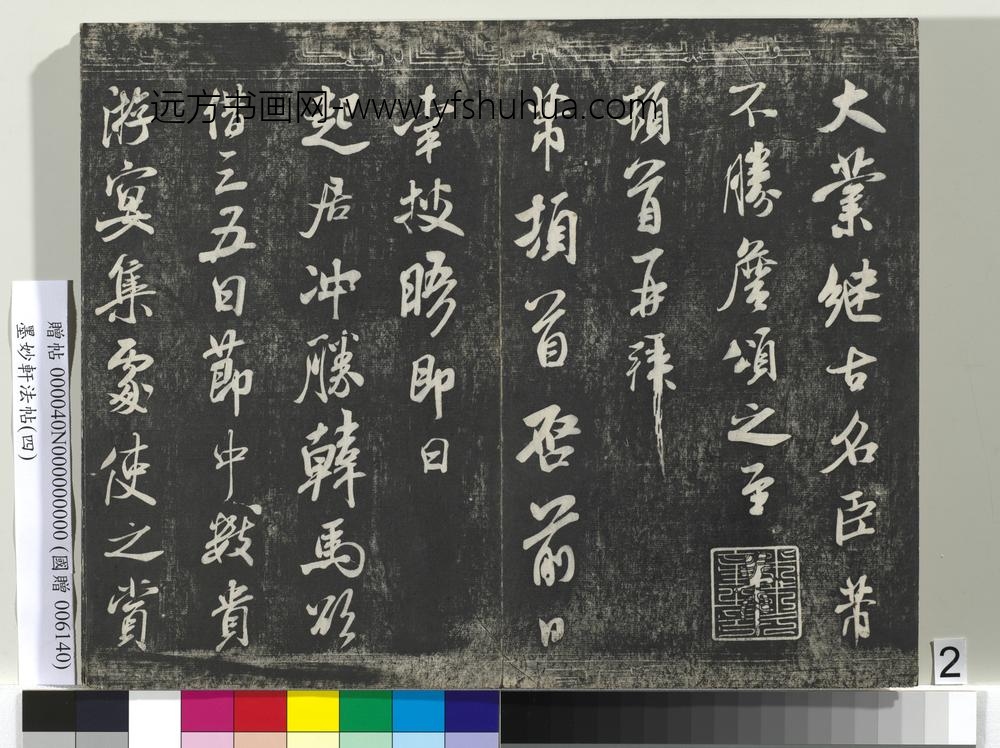 大業继古名臣芾
不勝詹頌之至
頓首再拜
芾頓首啓前日
幸披晤即日
起居冲勝韓馬欲
借三五日節中數贵
游宴集處使之賞
远方书画网-www.yfshuhua.com
贈帖 000040N000000000 (國贈 006140)
墨妙軒法帖(四)
2